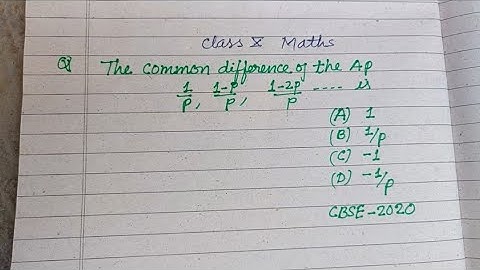 Class X Maths
Q) The common difference of the AP
1/p, 1-p/p, 1-2p/p ---- is
(A) 1
(B) 1/p
(C) -1
(D) -1/p
CBSE-2020